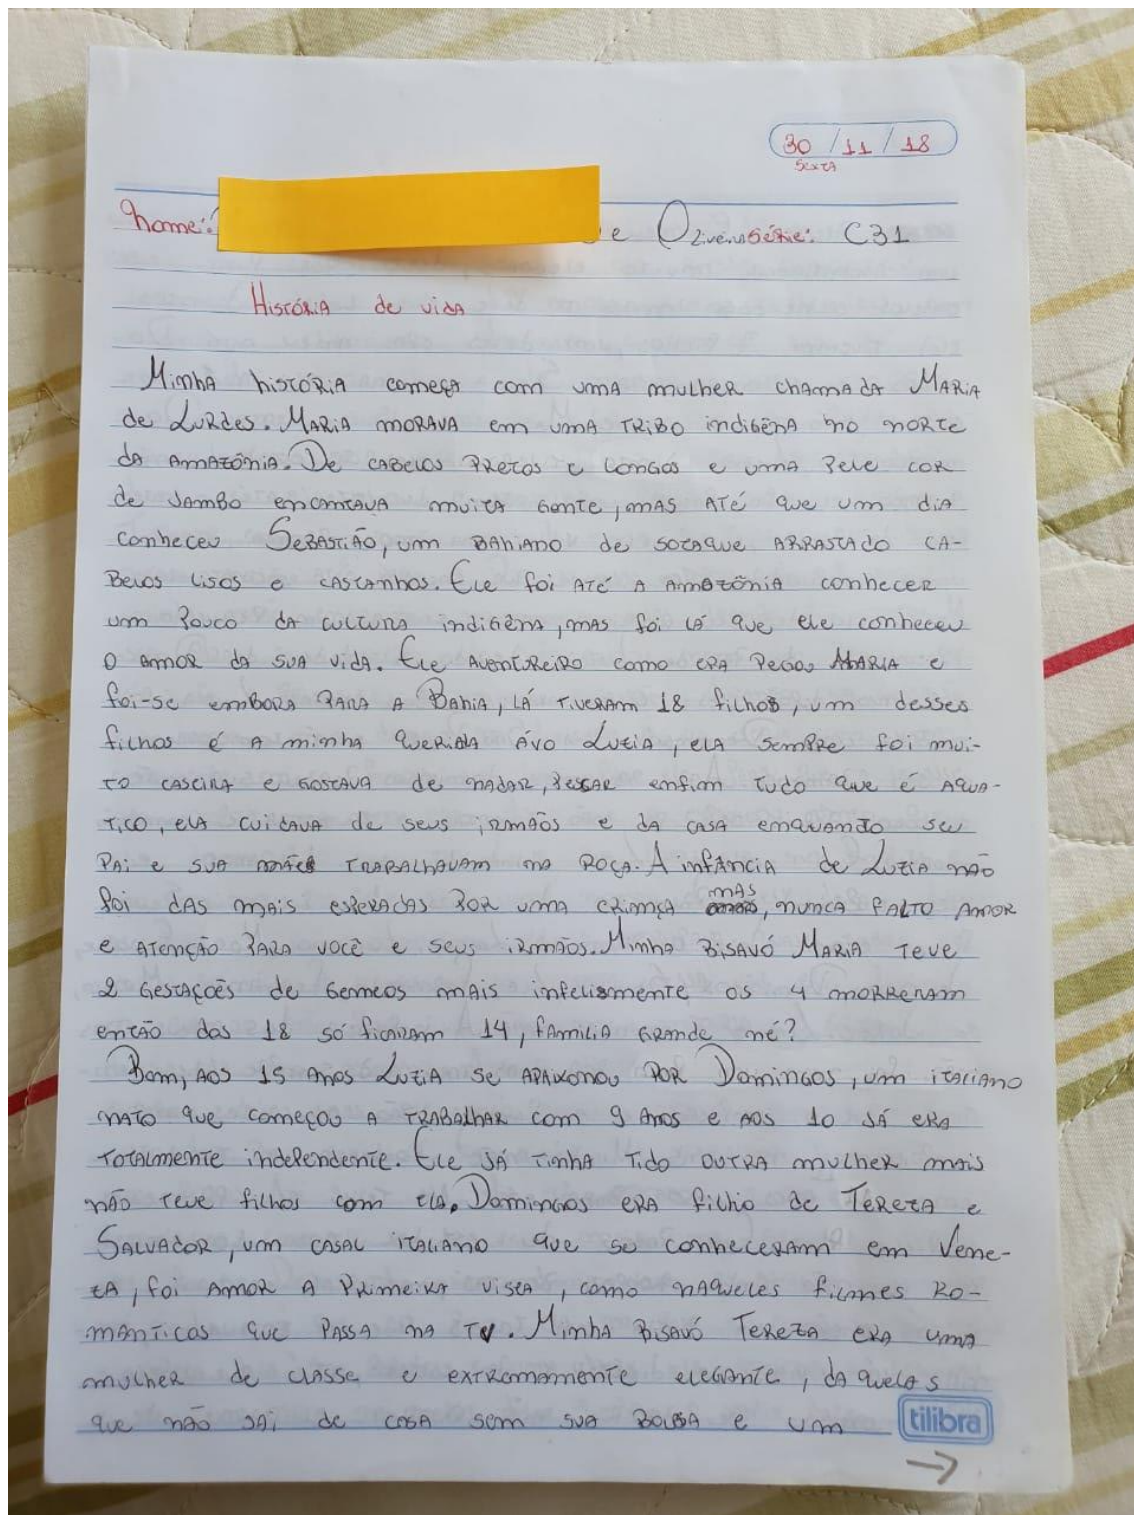 30 / 11 / 18
Sexta
Nome: e Oliveira Série: C31
História de vida
Minha história começa com uma mulher chamada Maria
de Lurdes. Maria morava em uma tribo indigêna no norte
da Amazônia. De cabelos pretos e longos e uma pele cor
de Jambo encantava muita gente, mas até que um dia
conheceu Sebastião, um Bahiano de sotaque arrastado ca-
belos lisos e castanhos. Ele foi até a Amazônia conhecer
um pouco da cultura indigêna, mas foi lá que ele conheceu
o amor da sua vida. Ele aventureiro como era pegou Maria e
foi-se embora para a Bahia, lá tiveram 18 filhos, um desses
filhos é a minha querida ávo Luzia, ela sempre foi mui-
to caseira e gostava de nadar, pescar enfim tudo que é aqua-
tico, ela cuidava de seus irmãos e da casa enquanto seu
pai e sua trabalhavam na roça. A infância de Luzia não
foi das mais esperadas por uma criança mas, nunca falto amor
e atenção para você e seus irmãos. Minha bisavó Maria teve
2 gestações de gemeos mais infelismente os 4 morreram
então dos 18 só ficaram 14, familia grande né?
Bom, aos 15 anos Luzia se apaixonou por Domingos, um italiano
nato que começou a trabalhar com 9 anos e aos 10 já era
totalmente independente. Ele já tinha tido outra mulher mais
não teve filhos com ela. Domingos era filho de Tereza e
Salvador, um casal italiano que se conheceram em Vene-
za, foi amor a primeira vista, como naqueles filmes ro-
mânticos que passa na TV. Minha bisavó Tereza era uma
mulher de classe e extremamente elegante, daquelas
que não sai de casa sem sua bolsa e um
tilibra